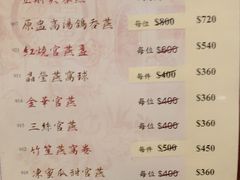 原盅高湯鴿吞燕 每位 $800 $720
紅燒官燕盞 每位 $600 $540
晶瑩燕窩球 每件 $400 $360
金華官燕 每位 $400 $360
三絲官燕 每位 $400 $360
竹笙燕窩卷 每件 $500 $450
凍蜜瓜甜官燕 每位 $400 $360